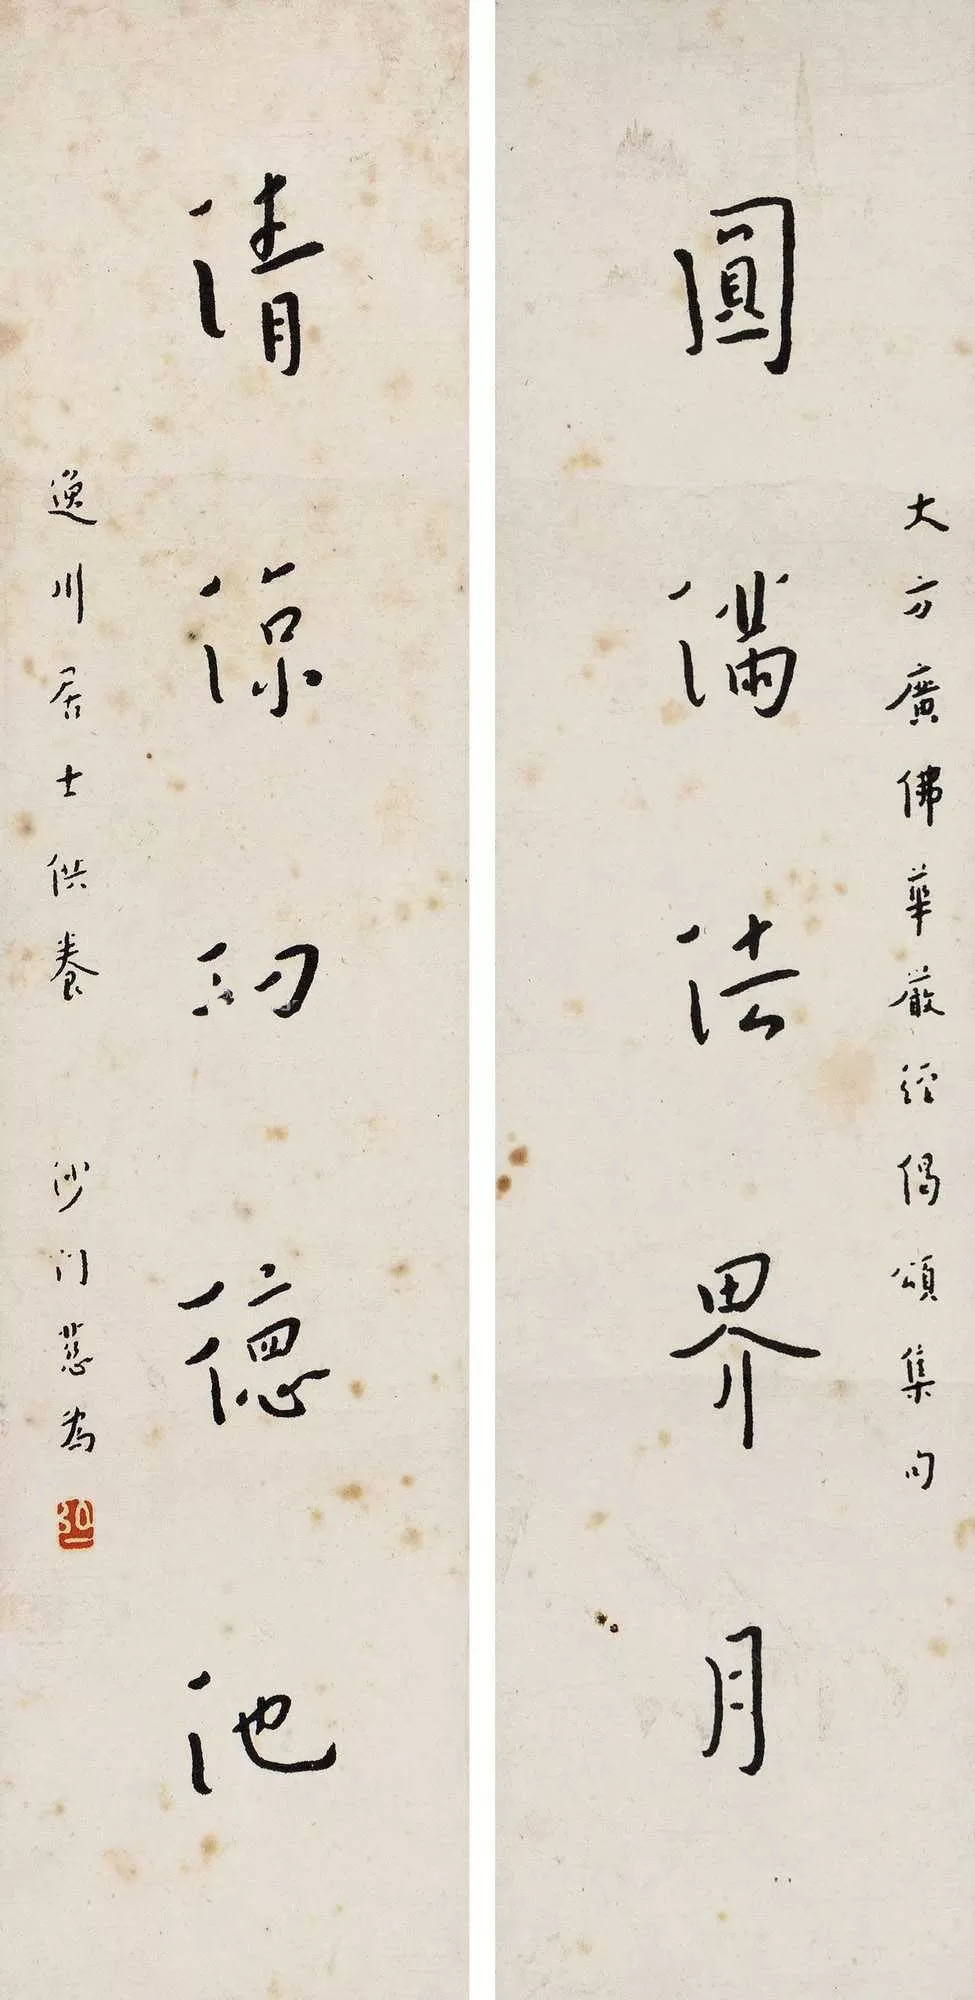 大方廣佛華嚴經偈頌集句
圓滿法界月
清涼功德池
逸川居士供養 沙門慈為
弘一